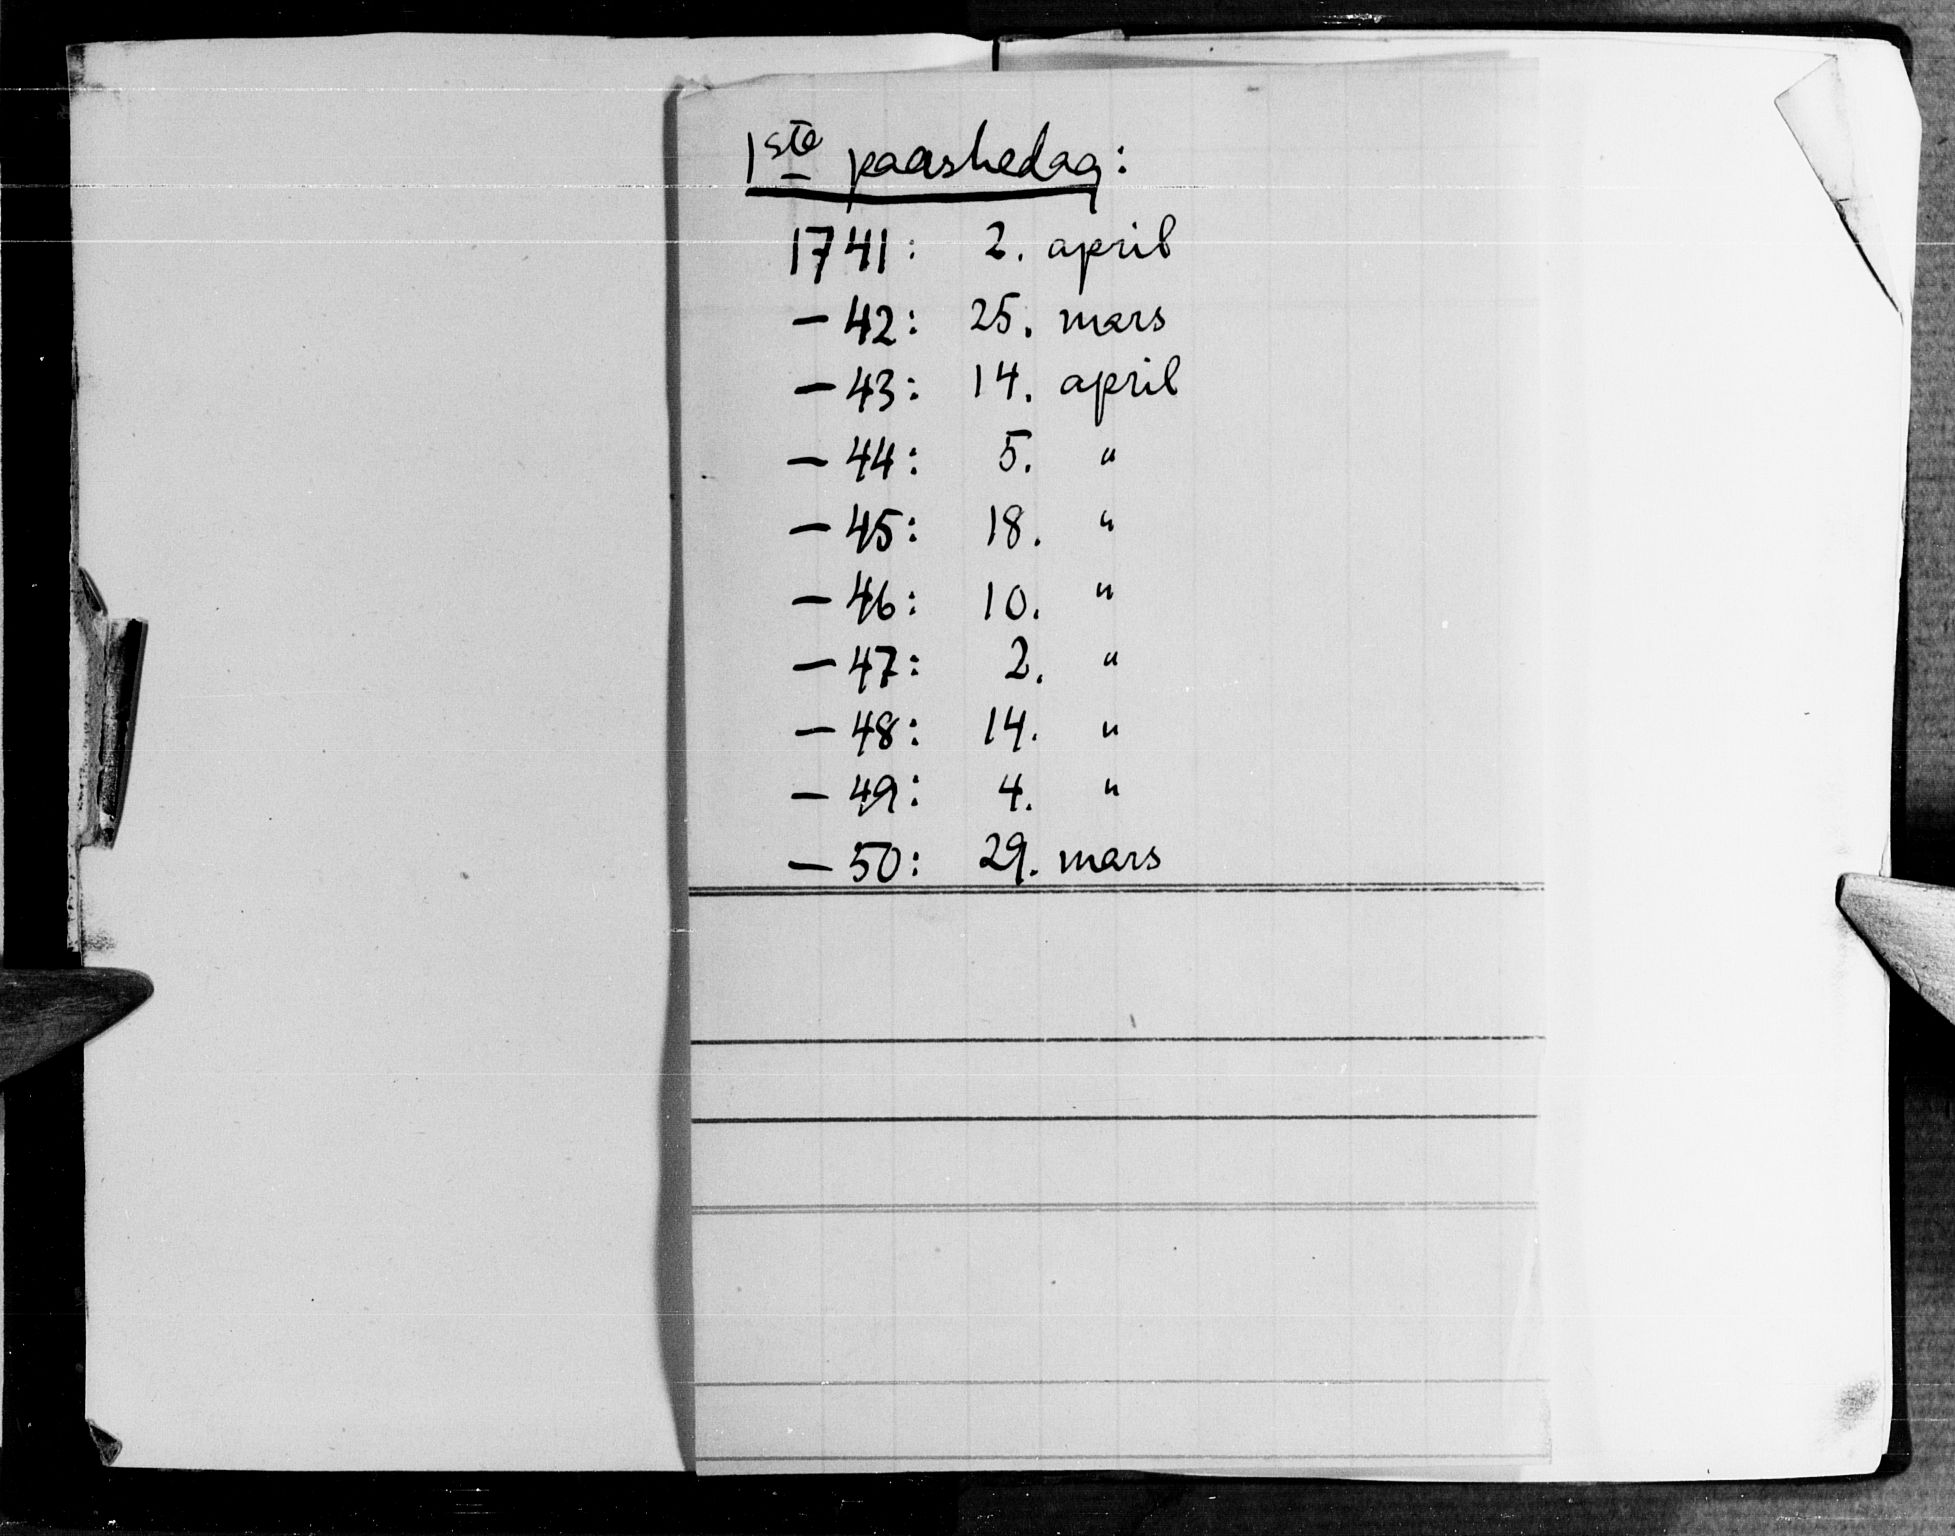 1ste paaskedag:
1741: 2. april
— 42: 25. mars
— 43: 14. april
— 44: 5. "
— 45: 18. "
— 46: 10. "
— 47: 2. "
— 48: 14. "
— 49: 4. "
— 50: 29. mars